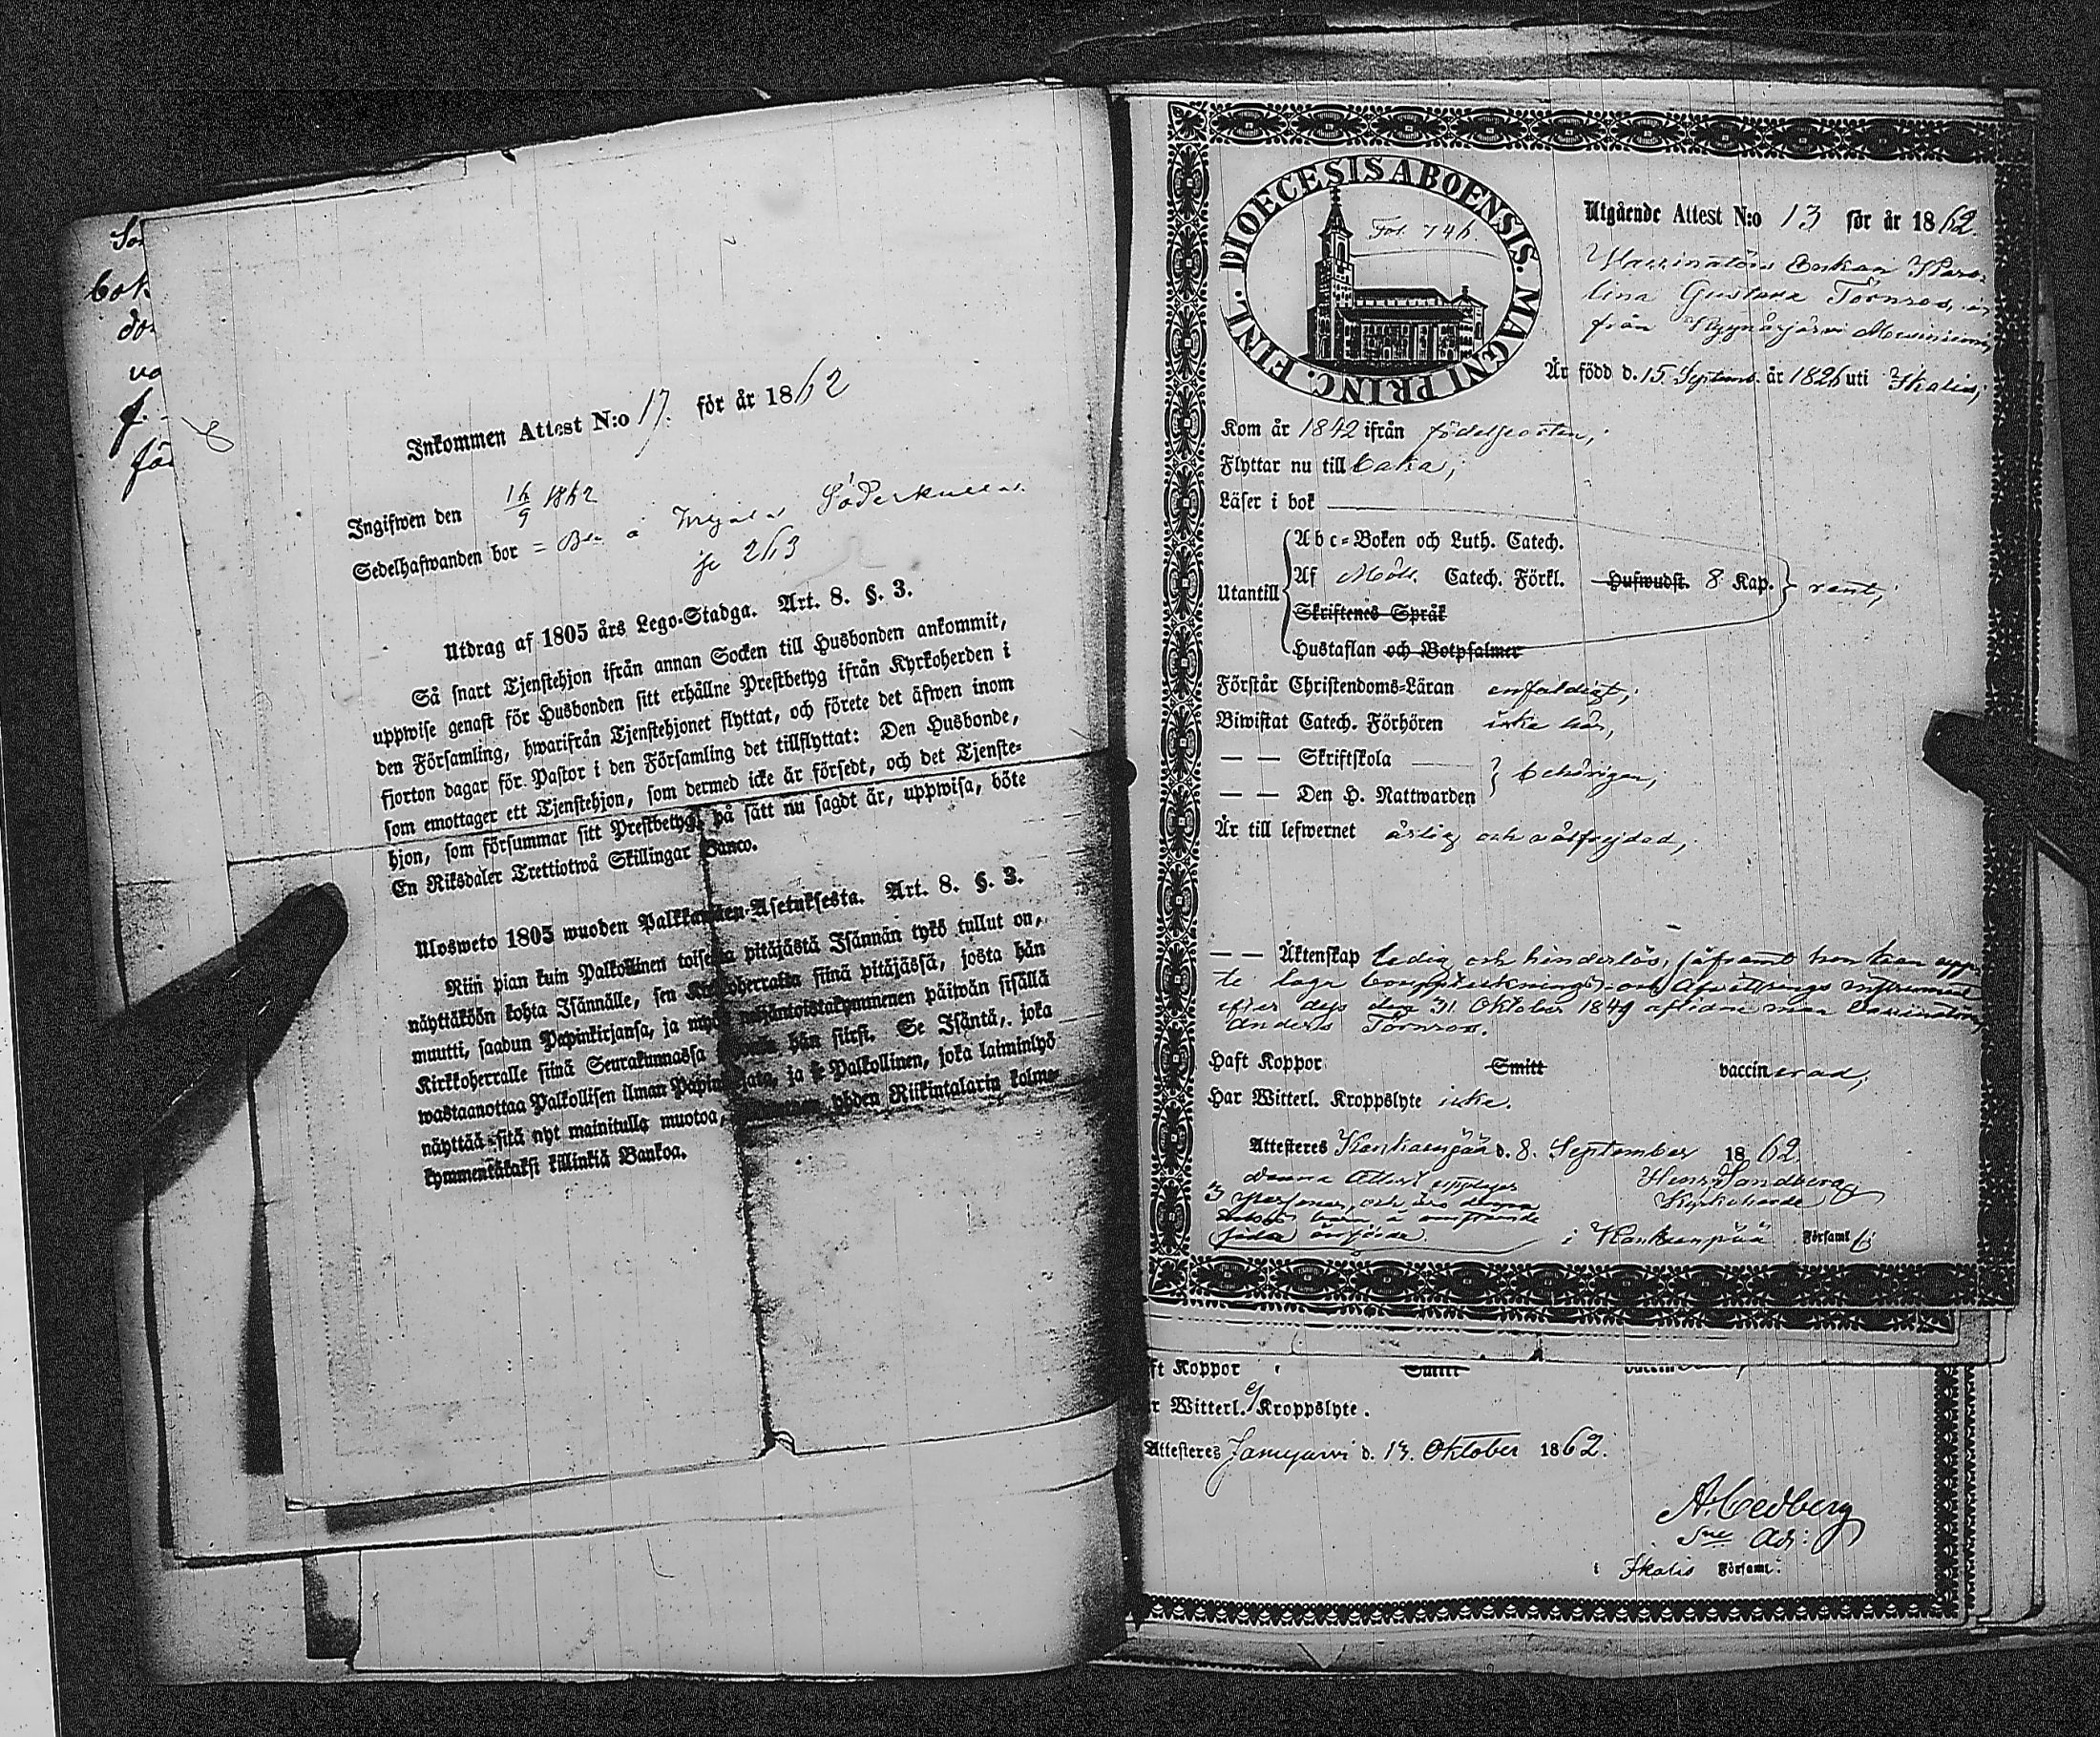 bok
Inkommen Attest N:o 17. för år 1862
Ingifwen den 16/9 1862
Sedelhafwanden bor = 
263
Utdrag af 1805 års Lego-Stadga. Art. 8. §. 3.
Så snart Tjenstehjon ifrån annan Socken till Husbonden ankommit,
uppwise genast för Husbonden sitt erhållne Prestbetyg ifrån Kyrkoherden i
den Församling, hwarifrån Tjenstehjonet flyttat, och förete det äfwen inom
fjorton dagar för Pastor i den Församling det tillflyttat: Den Husbonde,
som emottager ett Tjenstehjon, som dermed icke är försedt, och det Tjenste-
hjon, som försummar sitt Prestbetyg, på sätt nu sagdt är, uppwisa, böte
En Riksdaler Trettiotwå Skillingar Banco.
Ulosweto 1805 wuoden Palkkawäen-Asetuksesta. Art. 8. §. 3.
Niin pian kuin Palkollinen toisesta pitäjästä Isännän tykö tullut on,
näyttäköön kohta Isännälle, sen Kirkkoherralta siinä pitäjässä, josta hän
muutti, saadun Papinkirjansa, ja myös neljäntoistakymmenen päiwän sisällä
Kirkkoherralle siinä Seurakunnassa hän siirsi. Se Isäntä, joka
wastaanottaa Palkollisen ilman Papinkirjata, ja se Palkollinen, joka laiminlyö
näyttää sitä nyt mainitulla muotoa, yhden Riikintalarin kolme-
kymmentäkaksi killinkiä Bankoa.
DIOECESIS ABOENSIS. MAGNI PRINC. FINL.
Fol. 746.
Utgående Attest N:o 13 för år 1862.
Vaccinatörs Enkan Karo-
lina Gustava Törnros, är
från Kyynärjärvi
Är född d. 15. Septemb. år 1826 uti Ikalis;
Kom år 1842 ifrån födelseorten;
Flyttar nu till baka;
Läser i bok
Utantill
Abc-Boken och Luth. Catech.
Af Möll. Catech. Förkl. Hufwudst. 8 Kap. rent;
Skriftenes Språk
Hustaflan och Botpsalmer
Förstår Christendoms-Läran enfaldigt;
Biwistat Catech. Förhören icke här,
— — Skriftskola
— — Den H. Nattwarden
behörigen;
Är till lefwernet ärlig och välfrejdad,
— — Äktenskap ledig och hinderlös, såframt hon kan uppte
te laga bouppteckning och Afvittrings instrument
efter dess den 31 Oktober 1849 aflidne man Vaccinatören
Anders Törnroos.
Haft Koppor Smitt vaccinerad;
Har Witterl. Kroppslyte icke.
Attesteres Kankaanpää d. 8. September 1862.
Denna Attest upptager
3 personer, och äro dennes
barn å omstående
sida införde.
Henr. Sandberg
Kyrkoherde
i Kankaanpää Församl:
ft Koppor Smitt
r Witterl. Kroppslyte.
Attesteres Jämijärvi d. 13. Oktober 1862.
A. Cedberg
Sne Adj:
i Ikalis Församl.